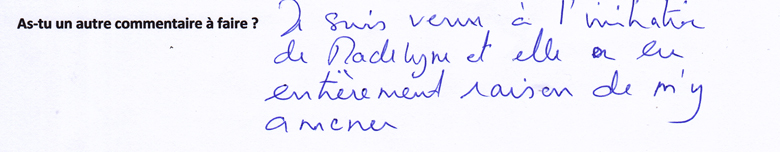 As-tu un autre commentaire à faire ? Je suis venu à l'initiative
de Madelyne et elle a eu
entièrement raison de m'y
amener